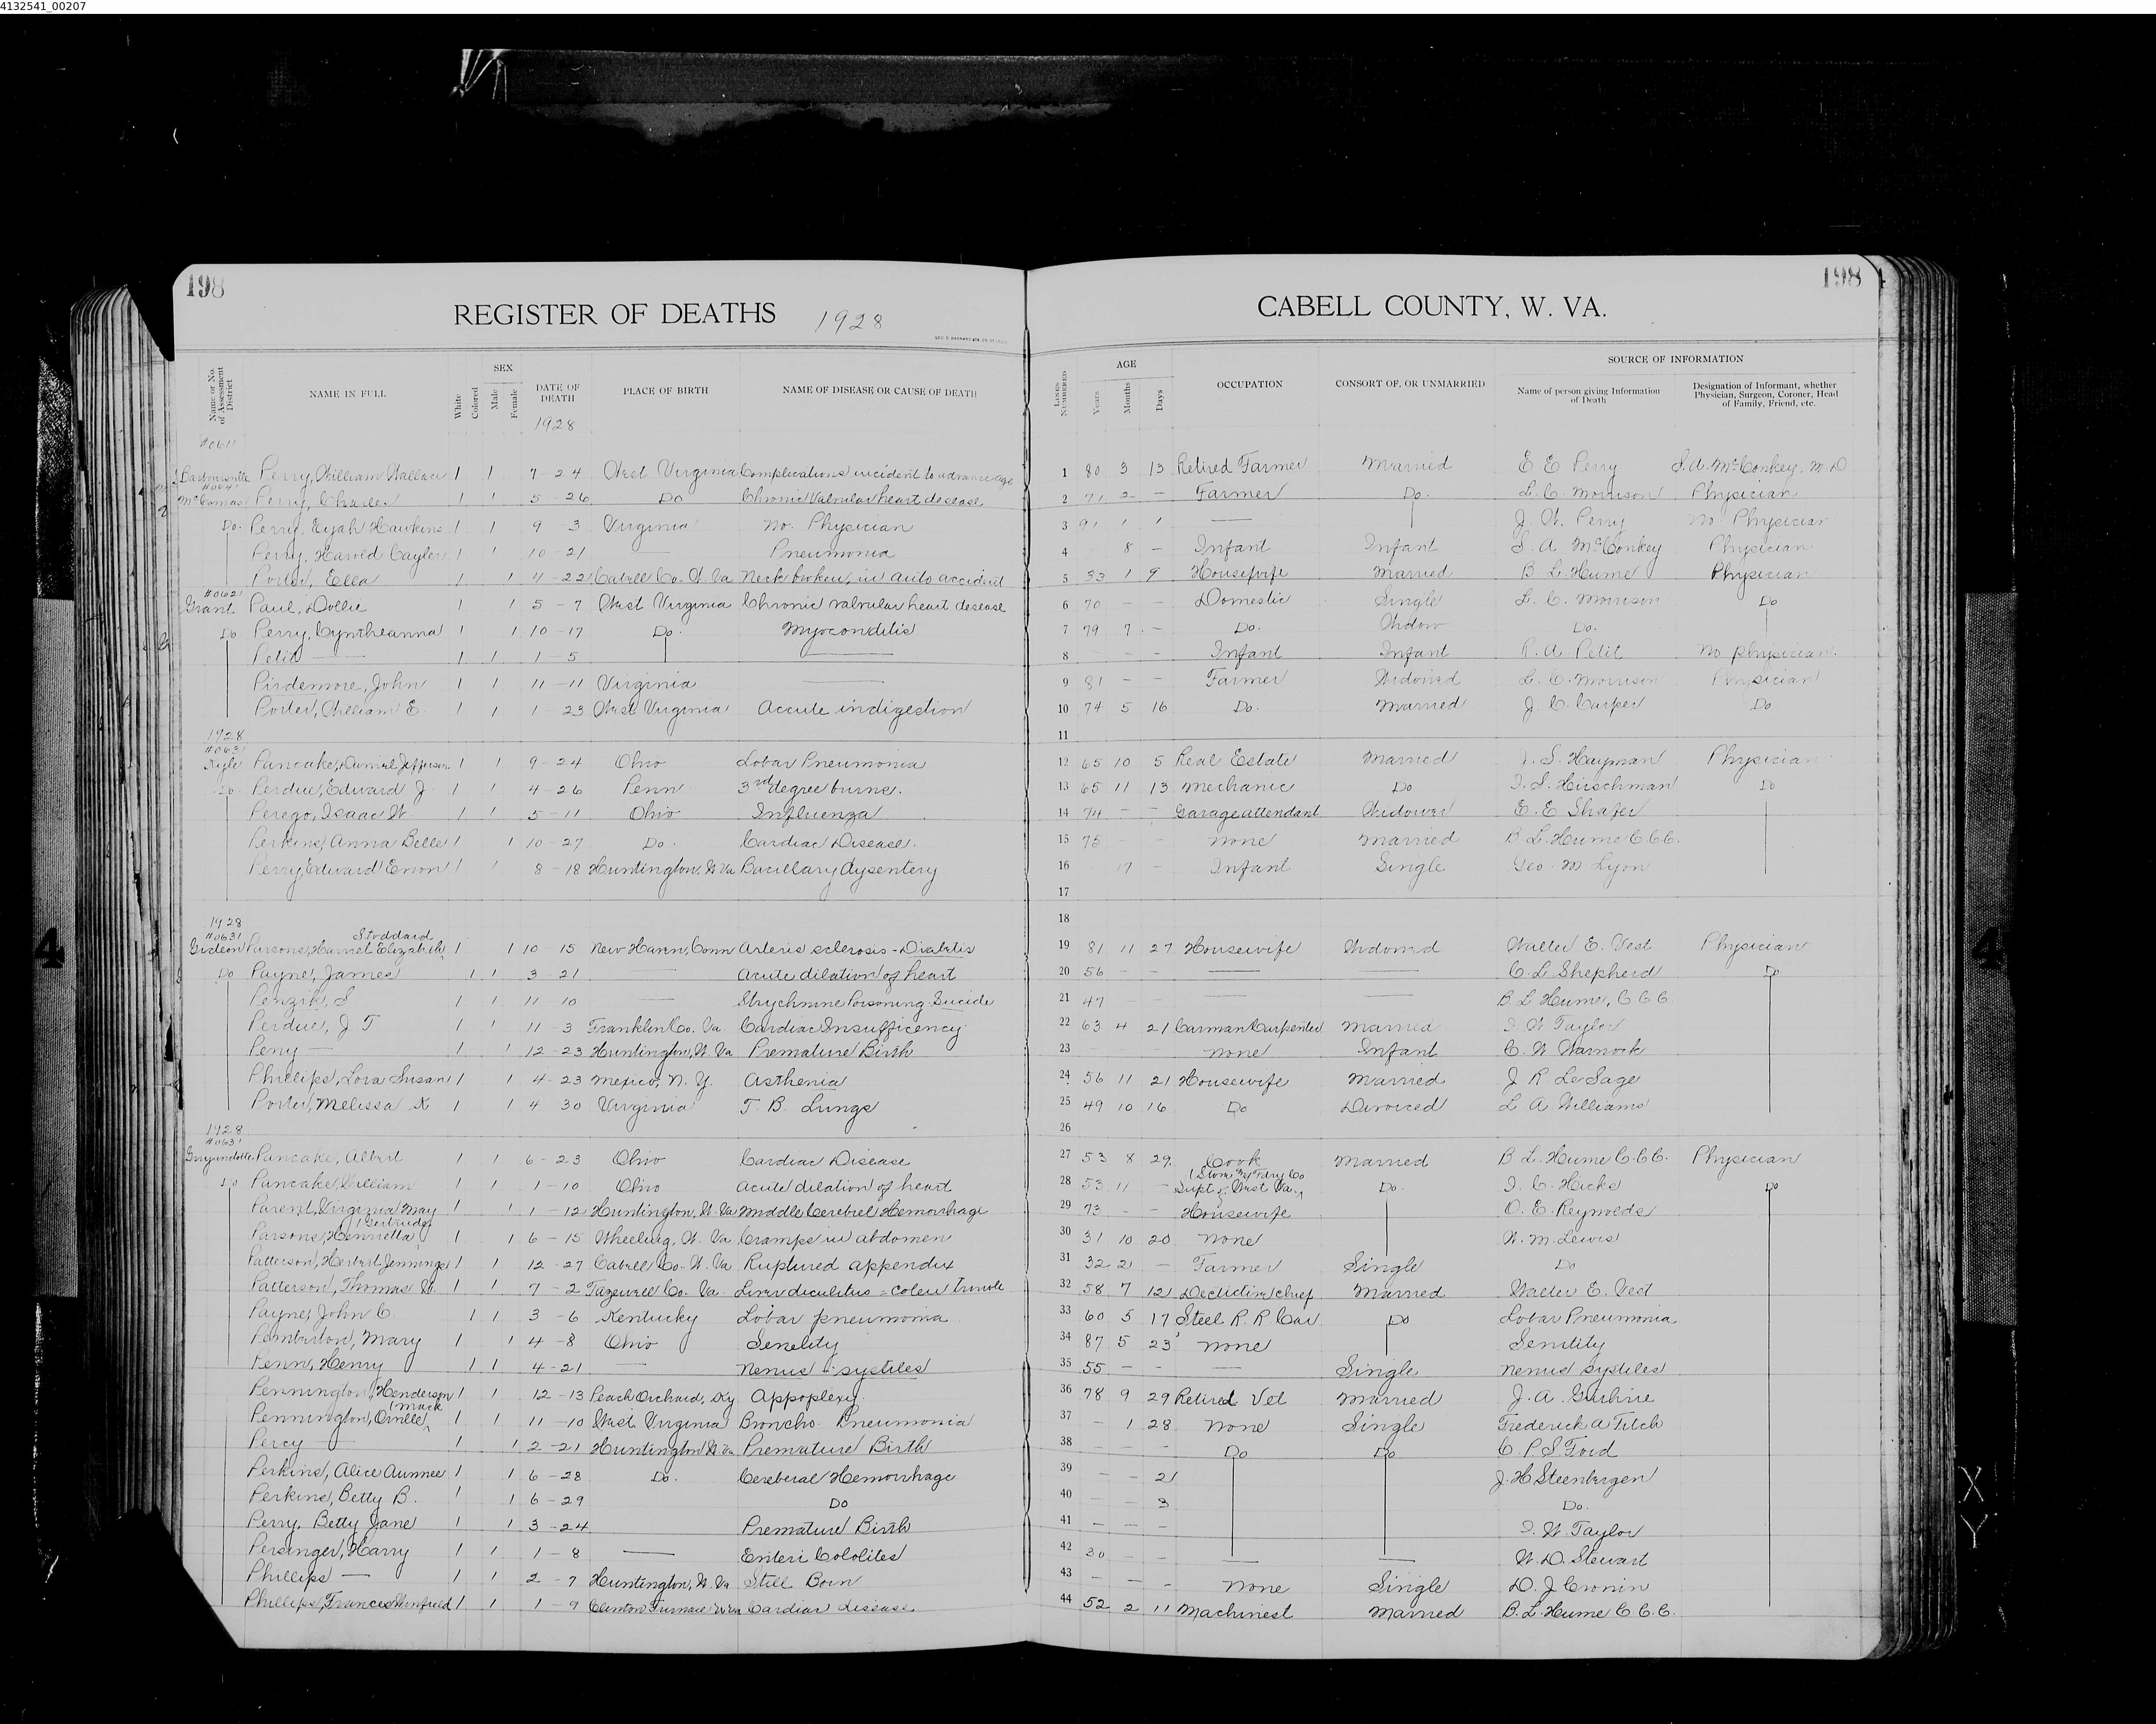 4132541_00207
198 198
REGISTER OF DEATHS 1928 CABELL COUNTY, W. VA.
Name or No. of Assessment District NAME IN FULL White Colored SEX Male Female DATE OF DEATH 1928 PLACE OF BIRTH NAME OF DISEASE OR CAUSE OF DEATH LINES NUMBERED AGE Years Months Days OCCUPATION CONSORT OF, OR UNMARRIED SOURCE OF INFORMATION Name of person giving Information of Death Designation of Informant, whether Physician, Surgeon, Coroner, Head of Family, Friend, etc.
#0611
Barboursville Perry, William Wallace 1 1 7-24 West Virginia Complications incident to advance age 1 80 3 13 Retired Farmer Married E E Perry S.A. McConkey, M.D
#0641
McComas Perry, Charles 1 1 5-26 Do Chronic Valvular heart desease 2 71 2 - Farmer Do. L. C. Morrison Physician
Do. Perry, Eijah Hawkins 1 1 9-3 Virginia No. Physician 3 91 1 1 — J. W. Perry No Physician
Perry, Harold Cayler 1 1 10-21 — Pneumonia 4 8 - Infant Infant S. A McConkey Physician
Porter, Ella 1 1 11-22 Cabell Co. W. Va Neck broken, in auto accident 5 33 1 9 Housewife Married B L. Hume Physician
#0621
Grant Paul, Dollie 1 1 5-7 West Virginia Chronic valvular heart desease 6 70 - - Domestic Single L. C. Morrison Do
Do Perry, Cyntheanna 1 1 10-17 Do. Myoconditis 7 79 7 - Do. Widow Do.
Petit — 1 1 1-5 — 8 - - - Infant Infant R. A. Petit No physician.
Pirdemore, John 1 1 11-11 Virginia — 9 81 - - Farmer Widowed L. C. Morrison Physician
Porter, William E. 1 1 1-23 West Virginia Accute indigestion 10 74 5 16 Do. Married J. C. Carper Do
1928 11
#0631
Kyle Pancake, Daniel Jefferson 1 1 9-24 Ohio Lobar Pneumonia 12 65 10 5 Real Estate Married J. S. Hayman Physician
Do Perdue, Edward J. 1 1 4-26 Penn 3rd degree burns. 13 65 11 13 Mechanic Do I. S. Hirschman Do
Perego, Isaac W. 1 1 5-11 Ohio Influenza 14 74 - - Garage attendant Widower E. E Shafer
Perkins, Anna Belle 1 1 10-27 Do. Cardiac Disease. 15 75 - - None Married B L. Hume C.C.C.
Perry, Edward Enon 1 1 8-18 Huntington, W. Va Bacillary dysentery 16 17 - Infant Single Geo. M Lyon
17
1928 18
#0631 Stoddard
Gideon Parsons, Harriet Elizabeth 1 1 10 15 New Haven, Conn Arteris sclerosis - Diabetis 19 81 11 27 Housewife Widowed Walter E. Vest Physician
Do Payne, James 1 1 3-21 — Acute dilation of heart 20 56 - - — — C. L Shepherd Do
Penzik, S 1 1 11-10 — Strychnine Poisoning Suicide 21 47 - - — B. L Hume, C C C
Perdue, J. T 1 1 11-3 Franklin Co. Va. Cardiac Insufficency 22 63 4 21 Carman Carpenter Married I. W Taylor
Perry — 1 1 12-23 Huntington, W. Va Premature Birth 23 - None Infant C. W Warnock
Phillips, Lora Susan 1 1 4-23 Mexico, N. Y. Asthenia 24 56 11 21 Housewife Married J R LeSage
Porter, Melissa K 1 1 4 30 Virginia T. B. Lungs 25 49 10 16 Do Divorced L A. Williams
1928 26
#0631
Guyandotte Pancake, Albert 1 1 6-23 Ohio Cardiac Disease 27 53 8 29. Cook Married B L. Hume C.C.C. Physician
Do Pancake, William 1 1 1-10 Ohio Acute dilation of heart 28 53 11 - Supt West Va. (Stone Mf Fdry Co Do. I. C. Hicks Do
Parent, Virginia May 1 1 1-12 Huntington, W. Va Middle Cerebrel Hemorrhage 29 73 - - Housewife O. E. Reynolds
Parsons, Henrietta Gertrude 1 1 6-15 Wheeling, W. Va. Cramps in abdomen 30 31 10 20 None W. M. Lewis
Patterson, Herbert Jennings 1 1 12-27 Cabell Co. W. Va Ruptured appendix 31 32 2 - Farmer Single Do
Patterson, Thomas W. 1 1 7-2 Tazewell Co. Va. 32 58 7 12 Married Walter E. Vest
Payne, John C. 1 1 3-6 Kentucky Lobar pneumonia 33 60 5 17 Steel R. R Car Do Lobar Pneumonia
Pemberton, Mary 1 1 4-8 Ohio Senelity 34 87 5 23 None Senitity
Penn, Henry 1 1 4-21 — Nenus - systiles 35 55 - - — Single Nenus systiles
Pennington, Henderson 1 1 12-13 Peach Orchard, Ky Appoplexy. 36 78 9 29 Retired Vet Married J. A. Guthrie
Pennington, Orville Mack 1 1 11-10 West Virginia Broncho. Pneumonia 37 - 1 28 None Single Frederick A Fitch
Percy — 1 1 2-21 Huntington W. Va Premature Birth 38 - - - Do Do C. P. S Ford
Perkins, Alice Aunnee 1 1 6-28 Do. Cereberal Hemorrhage 39 - - 21 J. H. Steenbergen
Perkins, Betty B. 1 1 6-29 Do 40 - - 3 Do.
Perry, Betty Jane 1 1 3-24 Premature Birth 41 - - - I. W. Taylor
Persinger, Harry 1 1 1-8 — Enteri Cololites 42 30 - - — — W. D. Stewart
Phillips — 1 1 2-7 Huntington, W. Va Still Born 43 - - - None Single D. J Cronin
Phillips, Frances Winfield 1 1 1-9 Clinton Furnace W Va Cardiac disease. 44 52 2 11 Machinest Married B. L. Hume C. C. C.
4 4
X
Y